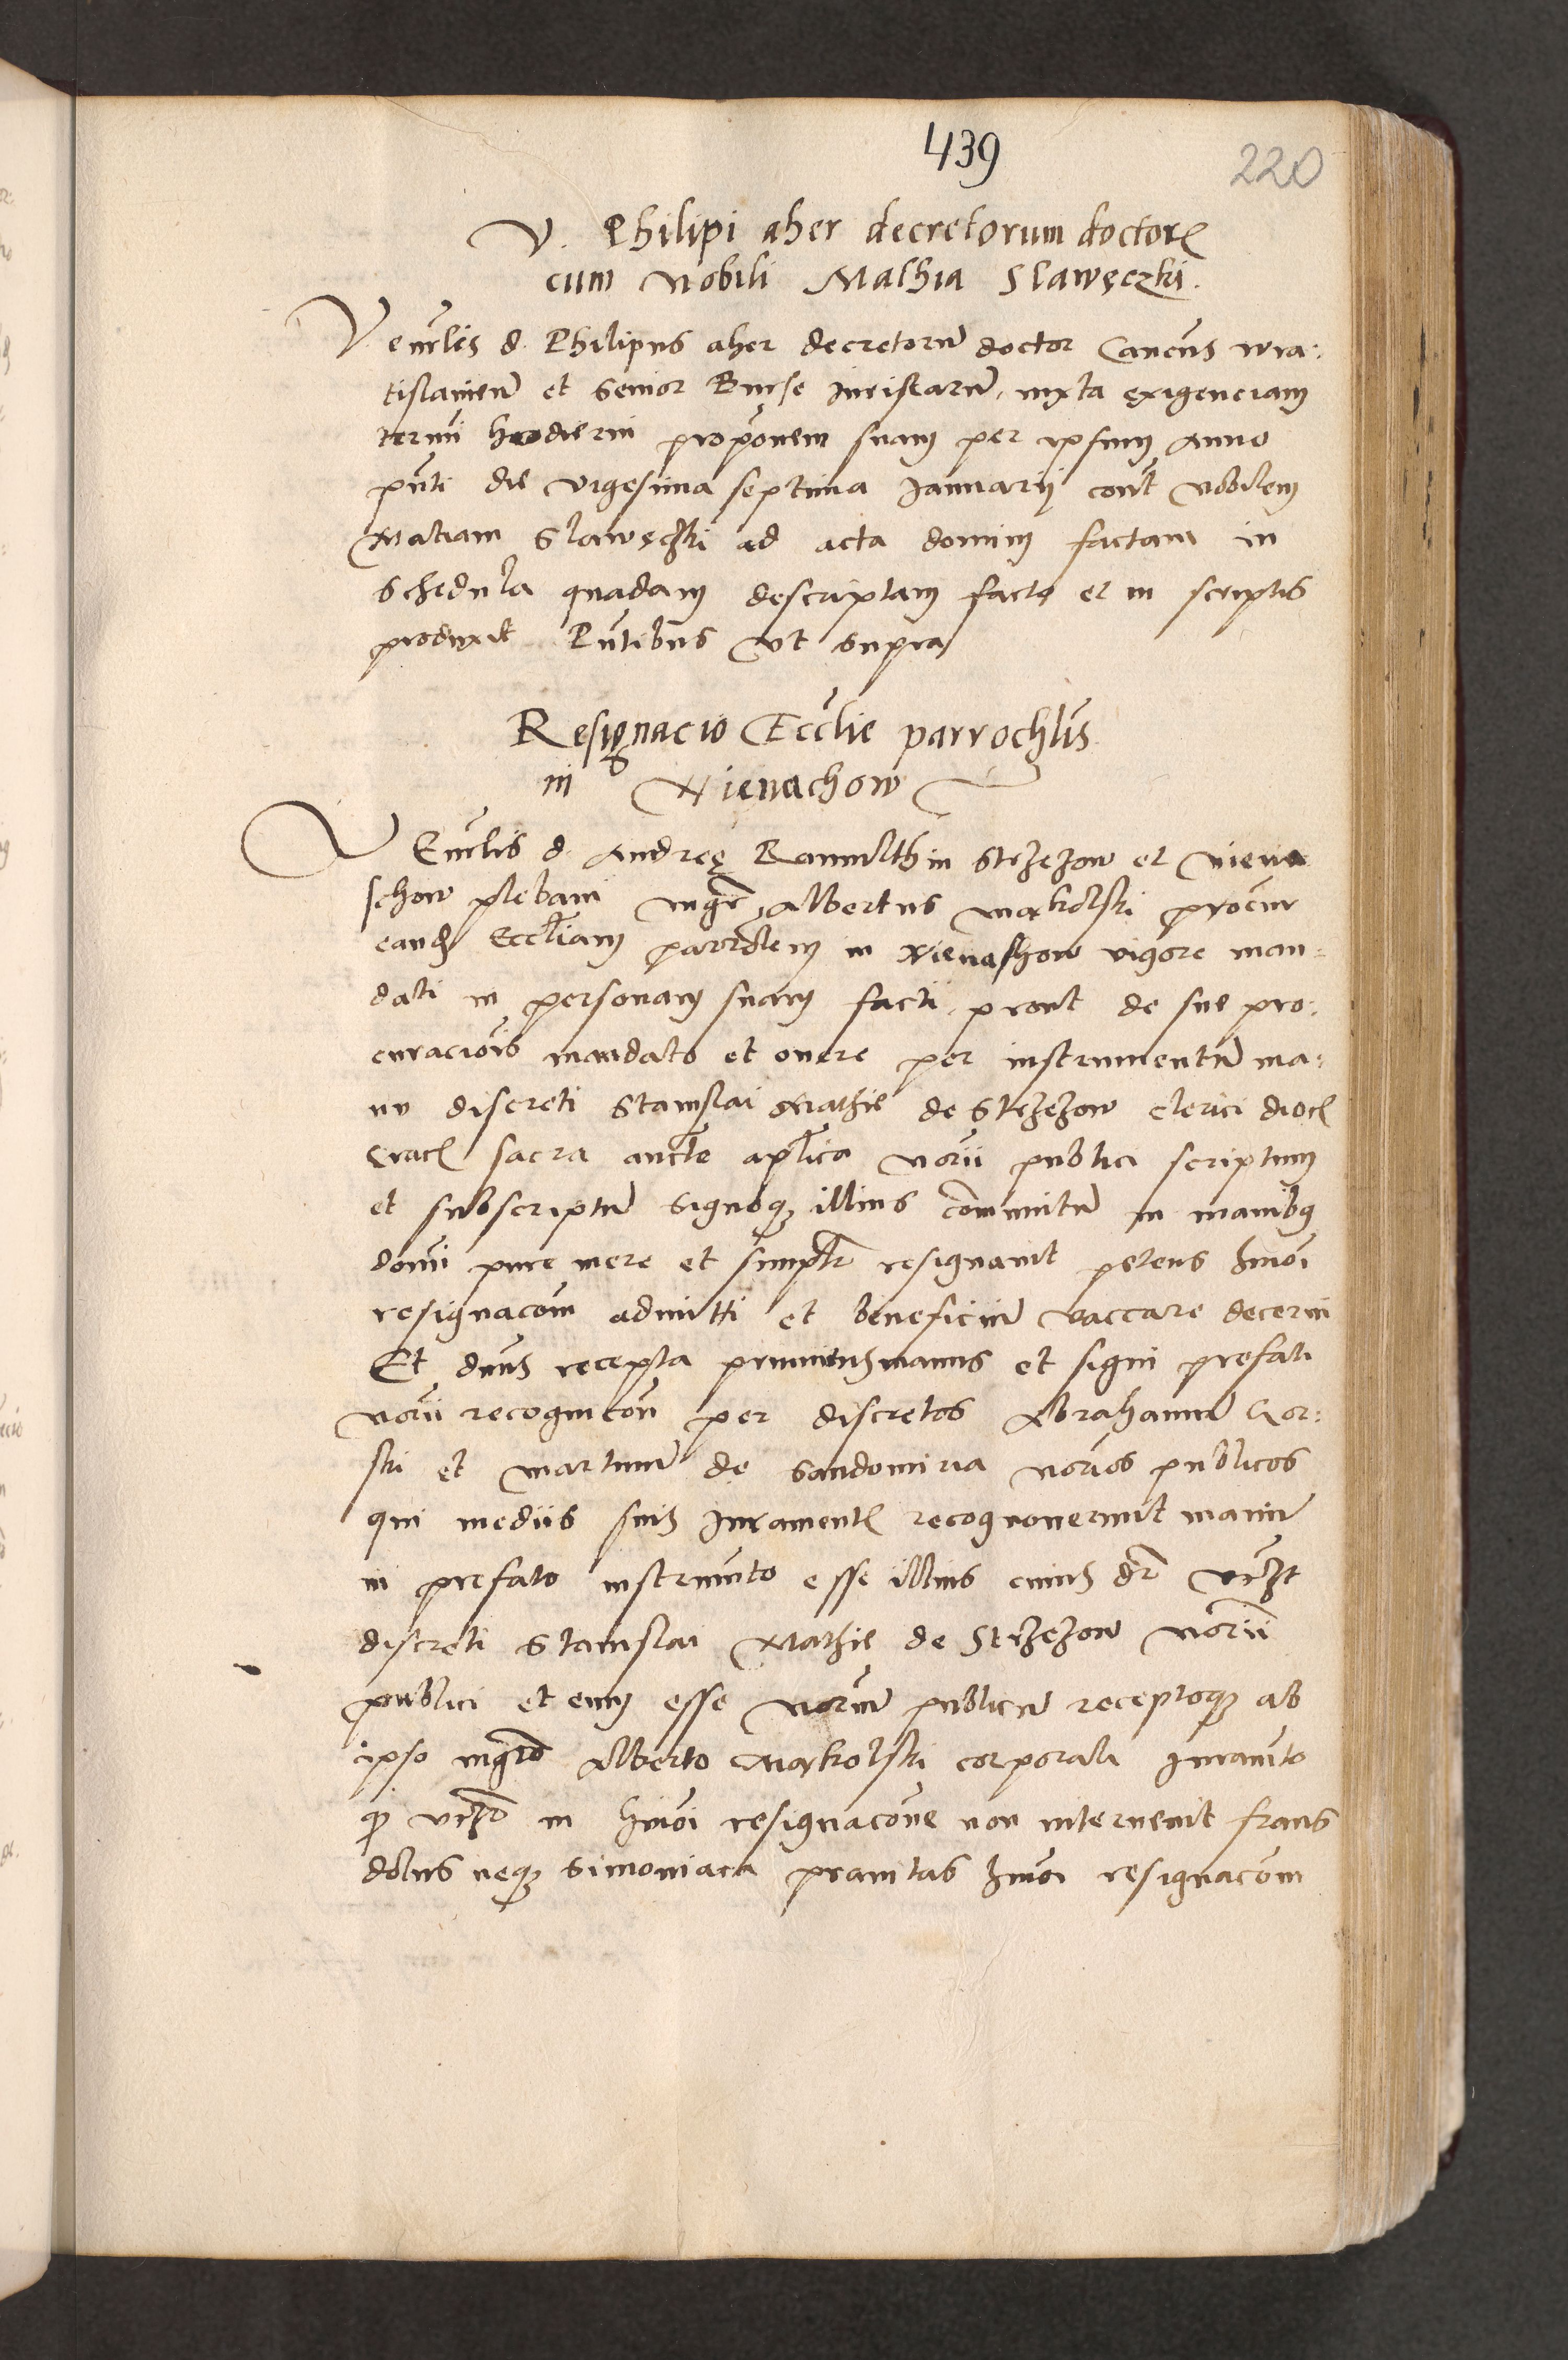 439
220
V. Philipi aher decretorum doctor
cum Nobili Mathia Slawęczki.
Venrlis d. Philipus aher decretorum doctor Cancus wra:
tislavien et Senior Burse Iuristarum iuxta exigenciam
termi hodierni proponem suam per ipsum Anno
pnti die vigesima septima Ianuarii cont Nobilem
Matiam Slawęczki ad acta domini factam in
Schedula quadam descriptam facto et in scriptis
produxit Pntibus Vt supra
Resignacio Ecclie parrochlis
in Nienachow
Venrlis d. Andree in Strzezow et Niena
schow plebani mgr Albertus procur
eand Eccliam parrolem in Nienaschow vigore man:
dati in personam suam facti prout de sue pro:
curacionis mandato et onere per instrumentum ma:
nu discreti Stanislai Mathie de Strzezow clerici dioc
Crac sacra aucte aplica norii publici scriptum
et subscriptum signoqz illius comunitum in manibus
domi pure mere et simplr resignavit petens hmoi
resignacom admitti et beneficium vaccare decerni
Et dnus recepta primitus manus et signi prefati
norii recognicon per discretos Abrahamum Gor:
ski et martinum de Sandomiria norios publicos
qui mediis suis Iuramentis recognoverunt manum
in prefato instrumto esse illius cuius dr vczt
discreti Stanislai Mathie de Strzezow norii
publici et eum esse norium publicum receptoqz ab
ipso mgro Alberto corporali Iuramto
qz vczo in hmoi resignacone non intervenit fraus
dolus neqz Simoniaca pravitas hmoi resignacom